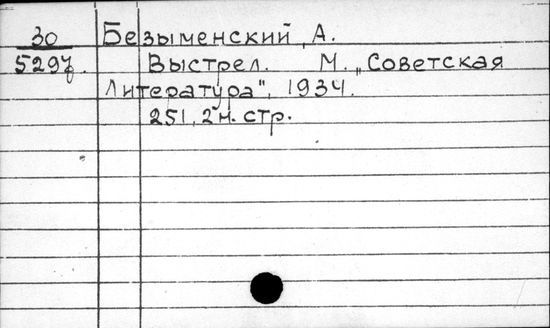 30 Безыменский, А.
5297. Выстрел. М. „Советская
Литература", 1934.
251, 2 н. стр.